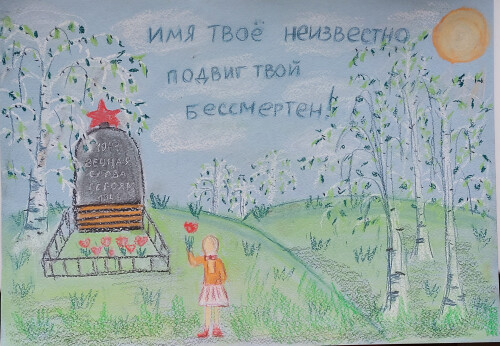 ИМЯ ТВОЁ НЕИЗВЕСТНО
ПОДВИГ ТВОЙ
БЕССМЕРТЕН!
ВЕЧНАЯ
СЛАВА
ГЕРОЯМ